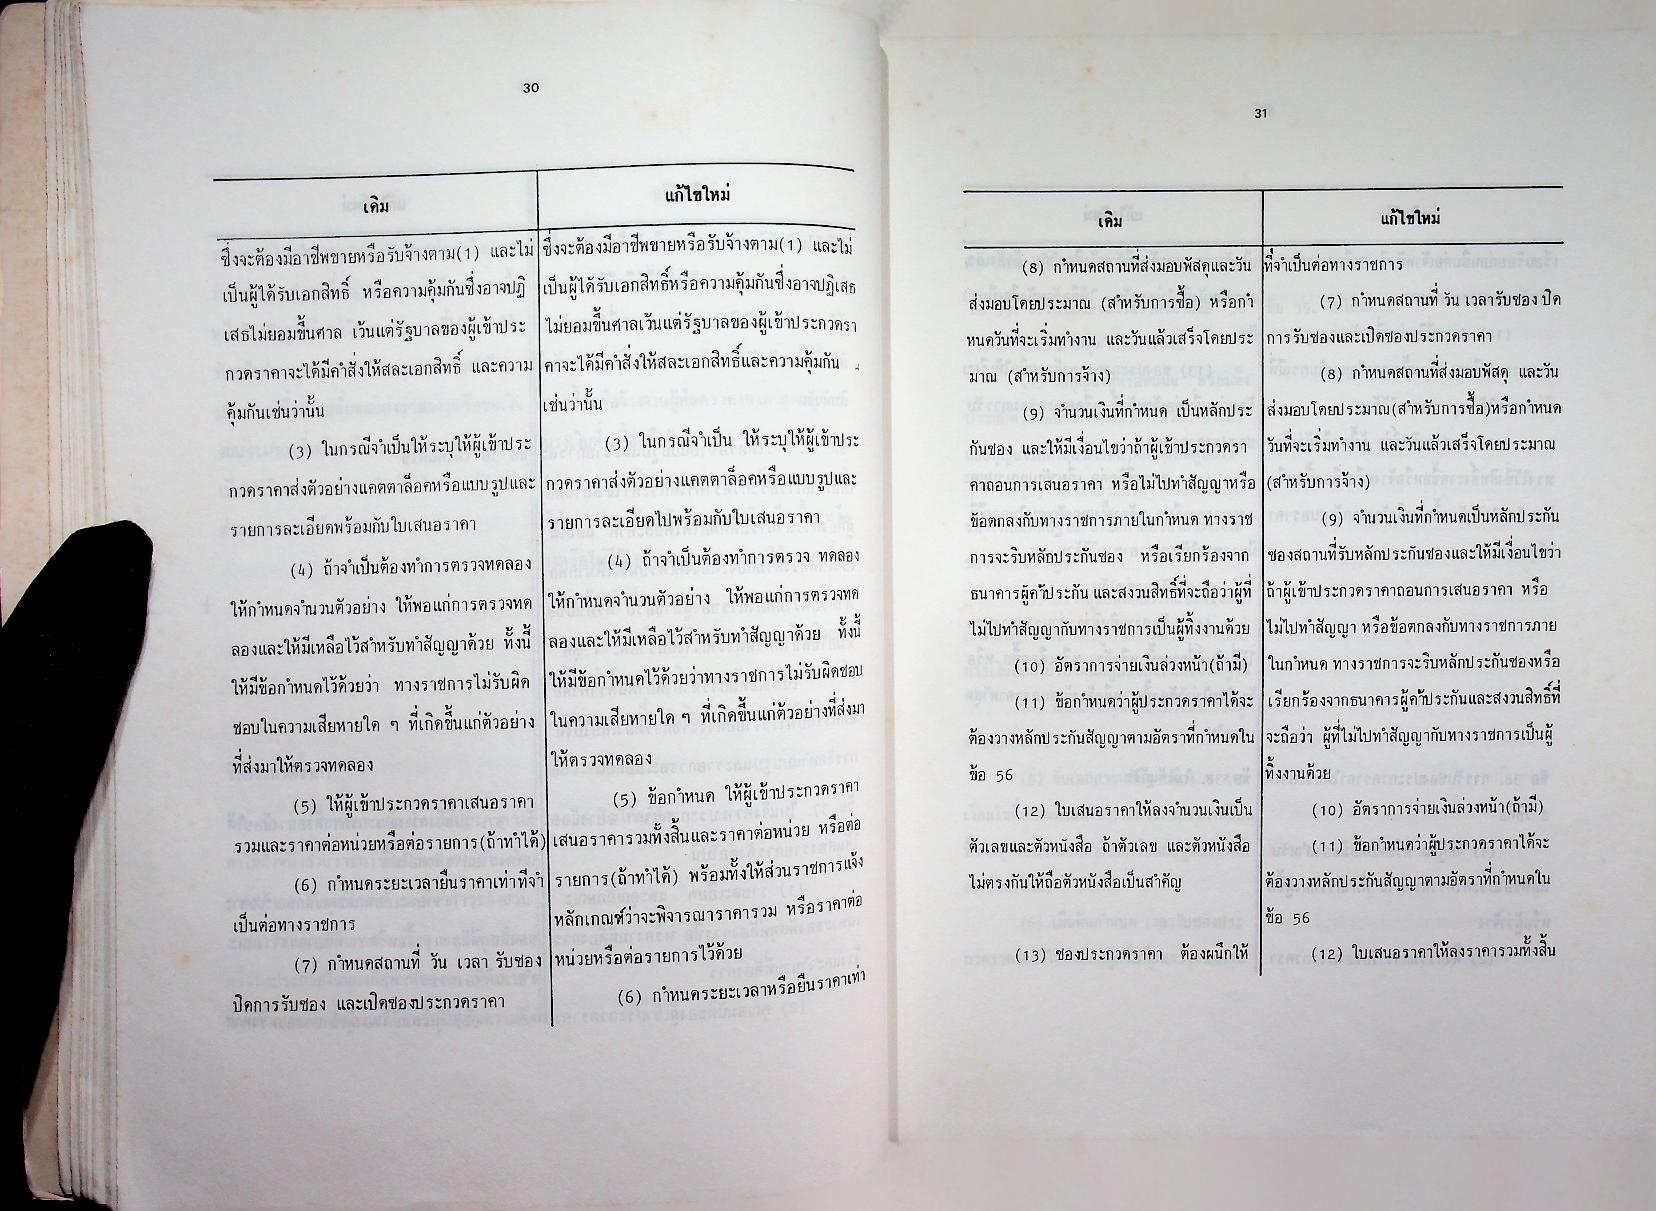 30
เดิม
ซึ่งจะต้องมีอาชีพขายหรือรับจ้างตาม(1) และไม่
เป็นผู้ได้รับเอกสิทธิ์ หรือความคุ้มกันซึ่งอาจปฏิ
เสธไม่ยอมขึ้นศาล เว้นแต่รัฐบาลของผู้เข้าประ
กวดราคาจะได้มีคำสั่งให้สละเอกสิทธิ์ และความ
คุ้มกันเช่นว่านั้น
(3) ในกรณีจำเป็นให้ระบุให้ผู้เข้าประ
กวดราคาส่งตัวอย่างแคตตาล็อคหรือแบบรูปและ
รายการละเอียดพร้อมกับใบเสนอราคา
(4) ถ้าจำเป็นต้องทำการตรวจทดลอง
ให้กำหนดจำนวนตัวอย่าง ให้พอแก่การตรวจทด
ลองและให้มีเหลือไว้สำหรับทำสัญญาด้วย ทั้งนี้
ให้มีข้อกำหนดไว้ด้วยว่า ทางราชการไม่รับผิด
ชอบในความเสียหายใด ๆ ที่เกิดขึ้นแก่ตัวอย่าง
ที่ส่งมาให้ตรวจทดลอง
(5) ให้ผู้เข้าประกวดราคาเสนอราคา
รวมและราคาต่อหน่วยหรือต่อรายการ(ถ้าทำได้)
(6) กำหนดระยะเวลายืนราคาเท่าที่จำ
เป็นต่อทางราชการ
(7) กำหนดสถานที่ วัน เวลา รับซอง
ปิดการรับซอง และเปิดซองประกวดราคา
แก้ไขใหม่
ซึ่งจะต้องมีอาชีพขายหรือรับจ้างตาม(1) และไม่
เป็นผู้ได้รับเอกสิทธิ์หรือความคุ้มกันซึ่งอาจปฏิเสธ
ไม่ยอมขึ้นศาลเว้นแต่รัฐบาลของผู้เข้าประกวดรา
คาจะได้มีคำสั่งให้สละเอกสิทธิ์และความคุ้มกัน
เช่นว่านั้น
(3) ในกรณีจำเป็น ให้ระบุให้ผู้เข้าประ
กวดราคาส่งตัวอย่างแคตตาล็อคหรือแบบรูปและ
รายการละเอียดไปพร้อมกับใบเสนอราคา
(4) ถ้าจำเป็นต้องทำการตรวจ ทดลอง
ให้กำหนดจำนวนตัวอย่าง ให้พอแก่การตรวจทด
ลองและให้มีเหลือไว้สำหรับทำสัญญาด้วย ทั้งนี้
ให้มีข้อกำหนดไว้ด้วยว่าทางราชการไม่รับผิดชอบ
ในความเสียหายใด ๆ ที่เกิดขึ้นแก่ตัวอย่างที่ส่งมา
ให้ตรวจทดลอง
(5) ข้อกำหนด ให้ผู้เข้าประกวดราคา
เสนอราคารวมทั้งสิ้นและราคาต่อหน่วย หรือต่อ
รายการ(ถ้าทำได้) พร้อมทั้งให้ส่วนราชการแจ้ง
หลักเกณฑ์ว่าจะพิจารณาราคารวม หรือราคาต่อ
หน่วยหรือต่อรายการไว้ด้วย
(6) กำหนดระยะเวลาหรือยืนราคาเท่า
31
เดิม
(8) กำหนดสถานที่ส่งมอบพัสดุและวัน
ส่งมอบโดยประมาณ (สำหรับการซื้อ) หรือกำ
หนดวันที่จะเริ่มทำงาน และวันแล้วเสร็จโดยประ
มาณ (สำหรับการจ้าง)
(9) จำนวนเงินที่กำหนด เป็นหลักประ
กันซอง และให้มีเงื่อนไขว่าถ้าผู้เข้าประกวดรา
คาถอนการเสนอราคา หรือไม่ไปทำสัญญาหรือ
ข้อตกลงกับทางราชการภายในกำหนด ทางราช
การจะริบหลักประกันซอง หรือเรียกร้องจาก
ธนาคารผู้ค้ำประกัน และสงวนสิทธิ์ที่จะถือว่าผู้ที่
ไม่ไปทำสัญญากับทางราชการเป็นผู้ทิ้งงานด้วย
(10) อัตราการจ่ายเงินล่วงหน้า(ถ้ามี)
(11) ข้อกำหนดว่าผู้ประกวดราคาได้จะ
ต้องวางหลักประกันสัญญาตามอัตราที่กำหนดใน
ข้อ 56
(12) ใบเสนอราคาให้ลงจำนวนเงินเป็น
ตัวเลขและตัวหนังสือ ถ้าตัวเลข และตัวหนังสือ
ไม่ตรงกันให้ถือตัวหนังสือเป็นสำคัญ
(13) ซองประกวดราคา ต้องผนึกให้
แก้ไขใหม่
ที่จำเป็นต่อทางราชการ
(7) กำหนดสถานที่ วัน เวลารับซอง ปิด
การรับซองและเปิดซองประกวดราคา
(8) กำหนดสถานที่ส่งมอบพัสดุ และวัน
ส่งมอบโดยประมาณ(สำหรับการซื้อ)หรือกำหนด
วันที่จะเริ่มทำงาน และวันแล้วเสร็จโดยประมาณ
(สำหรับการจ้าง)
(9) จำนวนเงินที่กำหนดเป็นหลักประกัน
ซองสถานที่รับหลักประกันซองและให้มีเงื่อนไขว่า
ถ้าผู้เข้าประกวดราคาถอนการเสนอราคา หรือ
ไม่ไปทำสัญญา หรือข้อตกลงกับทางราชการภาย
ในกำหนด ทางราชการจะริบหลักประกันซองหรือ
เรียกร้องจากธนาคารผู้ค้ำประกันและสงวนสิทธิ์ที่
จะถือว่า ผู้ที่ไม่ไปทำสัญญากับทางราชการเป็นผู้
ทิ้งงานด้วย
(10) อัตราการจ่ายเงินล่วงหน้า(ถ้ามี)
(11) ข้อกำหนดว่าผู้ประกวดราคาได้จะ
ต้องวางหลักประกันสัญญาตามอัตราที่กำหนดใน
ข้อ 56
(12) ใบเสนอราคาให้ลงราคารวมทั้งสิ้น